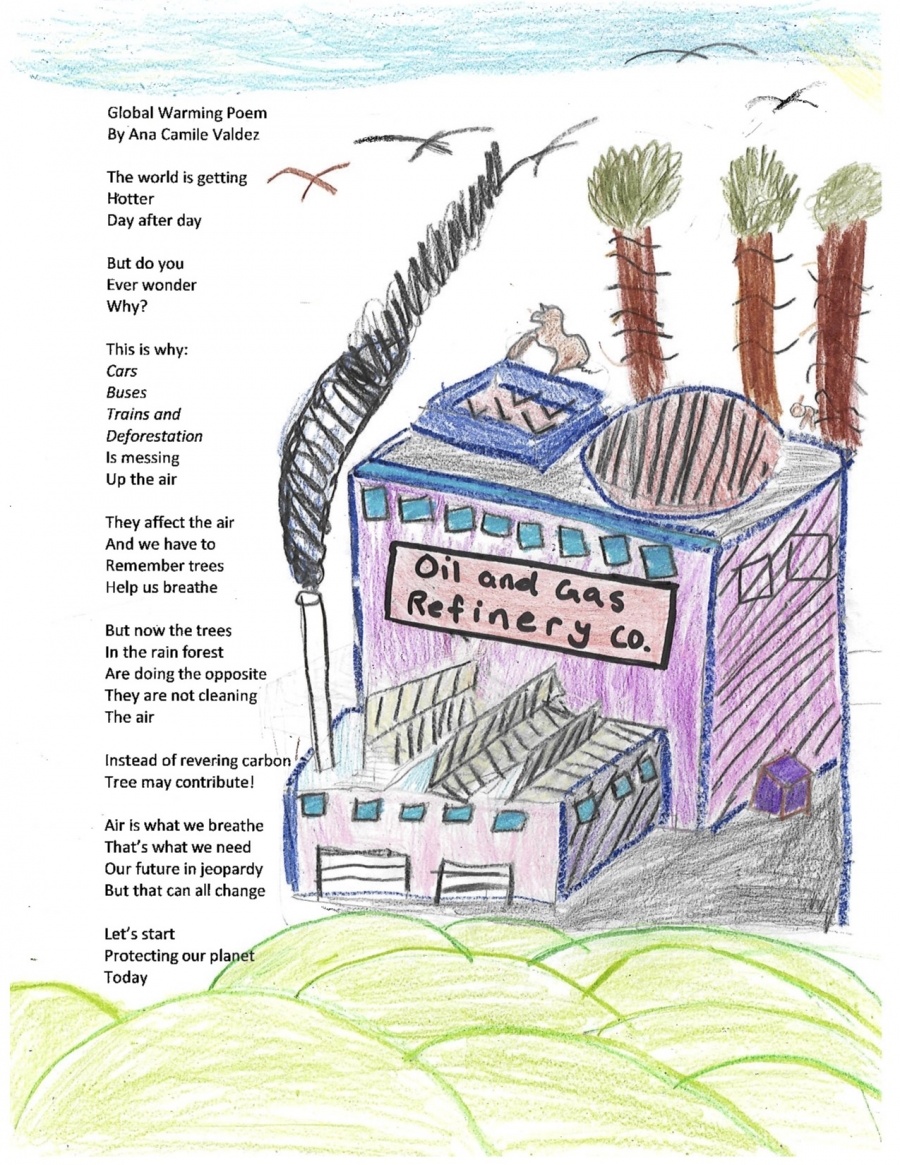 Global Warming Poem
By Ana Camile Valdez
The world is getting
Hotter
Day after day
But do you
Ever wonder
Why?
This is why:
Cars
Buses
Trains and
Deforestation
Is messing
Up the air
They affect the air
And we have to
Remember trees
Help us breathe
But now the trees
In the rain forest
Are doing the opposite
They are not cleaning
The air
Instead of revering carbon
Tree may contribute!
Air is what we breathe
That's what we need
Our future in jeopardy
But that can all change
Let's start
Protecting our planet
Today
Oil and Gas
Refinery Co.